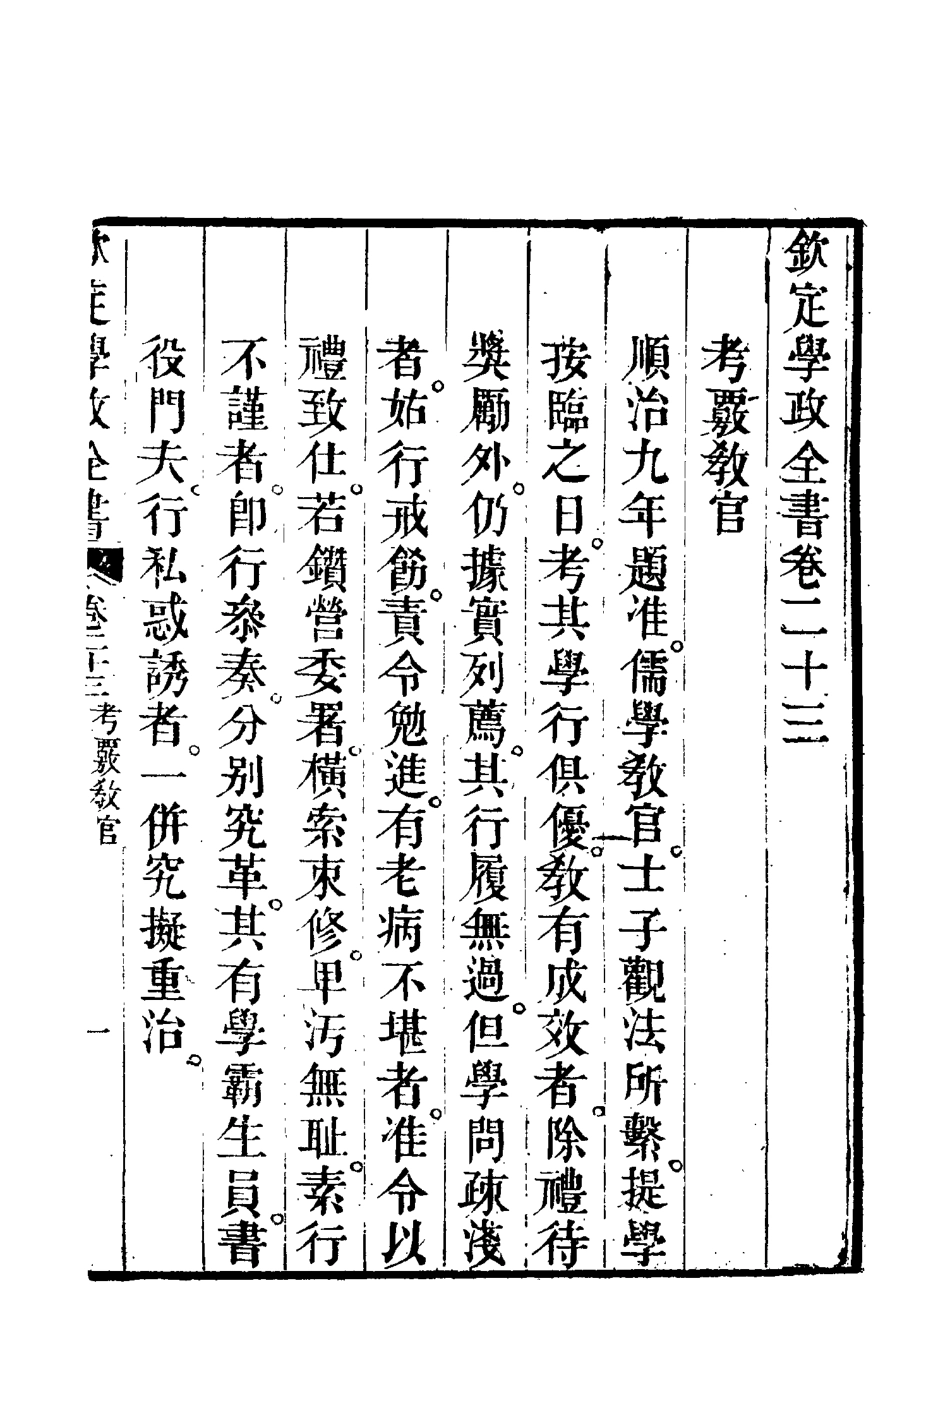 欽定學政全書卷二十三
考覈教官
順治九年題准。儒學教官。士子觀法所繫。提學
按臨之日。考其學行俱優。教有成效者。除禮待
獎勵外。仍據實列薦。其行履無過。但學問疎淺
者。姑行戒飭。責令勉進。有老病不堪者。准令以
禮致仕。若鑽營委署。橫索束修。卑汚無耻。素行
不謹者。卽行叅奏。分别究革。其有學霸生員。書
役門夫。行私惑誘者。一併究擬重治。
欽定學政全書 卷二十三 考覈教官 一